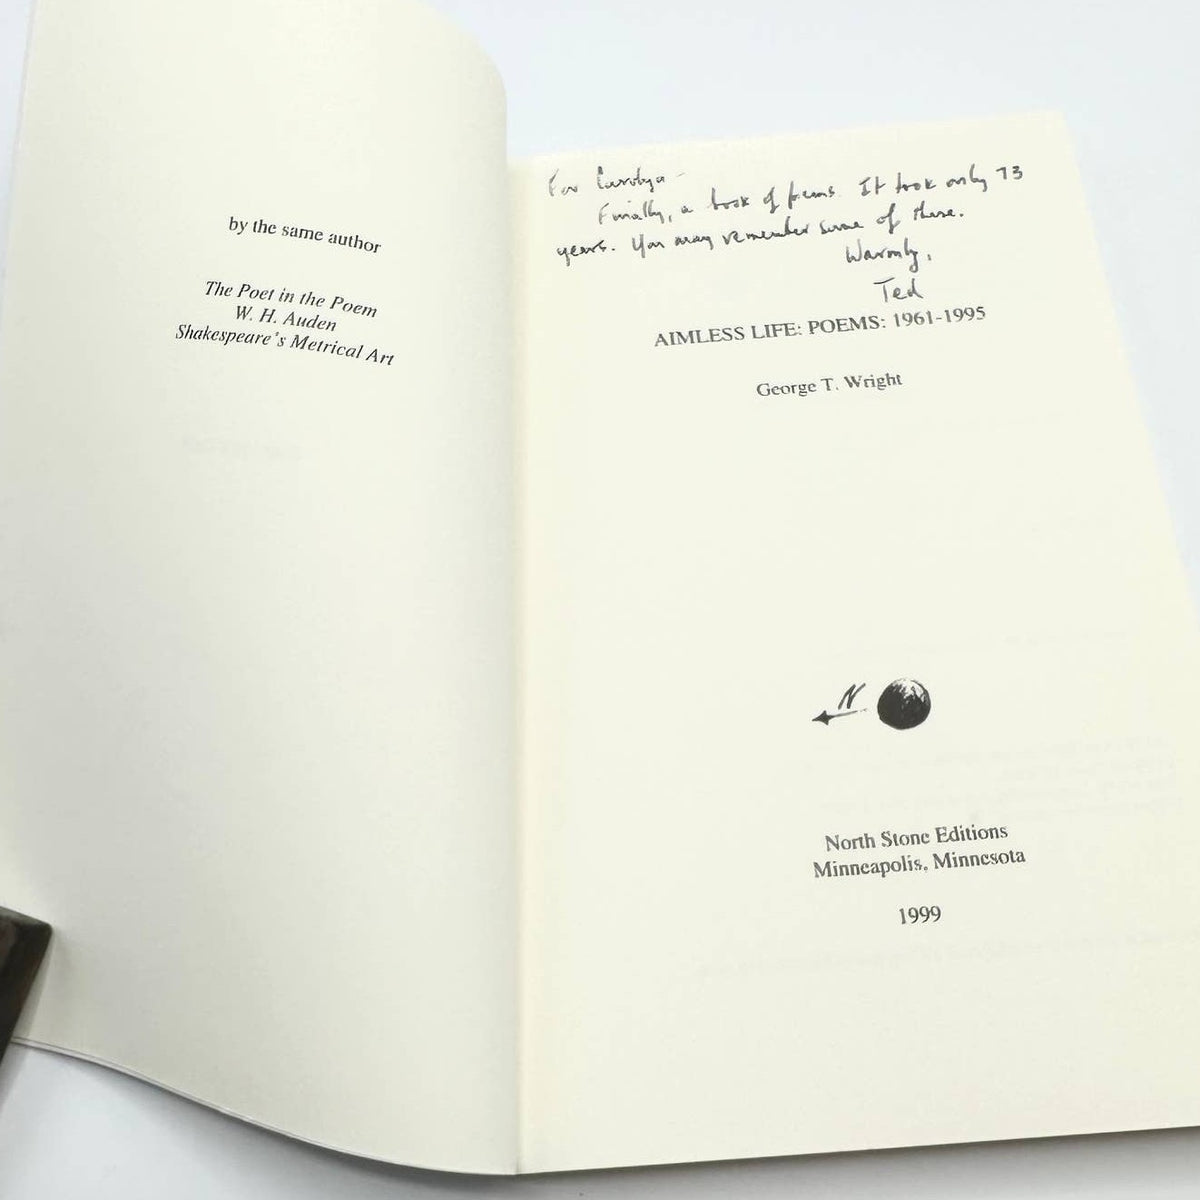 by the same author
The Poet in the Poem
W. H. Auden
Shakespeare's Metrical Art
For Carolyn -
Finally, a book of poems. It took only 73
years. You may remember some of these.
Warmly,
Ted
AIMLESS LIFE: POEMS: 1961-1995
George T. Wright
N
North Stone Editions
Minneapolis, Minnesota
1999